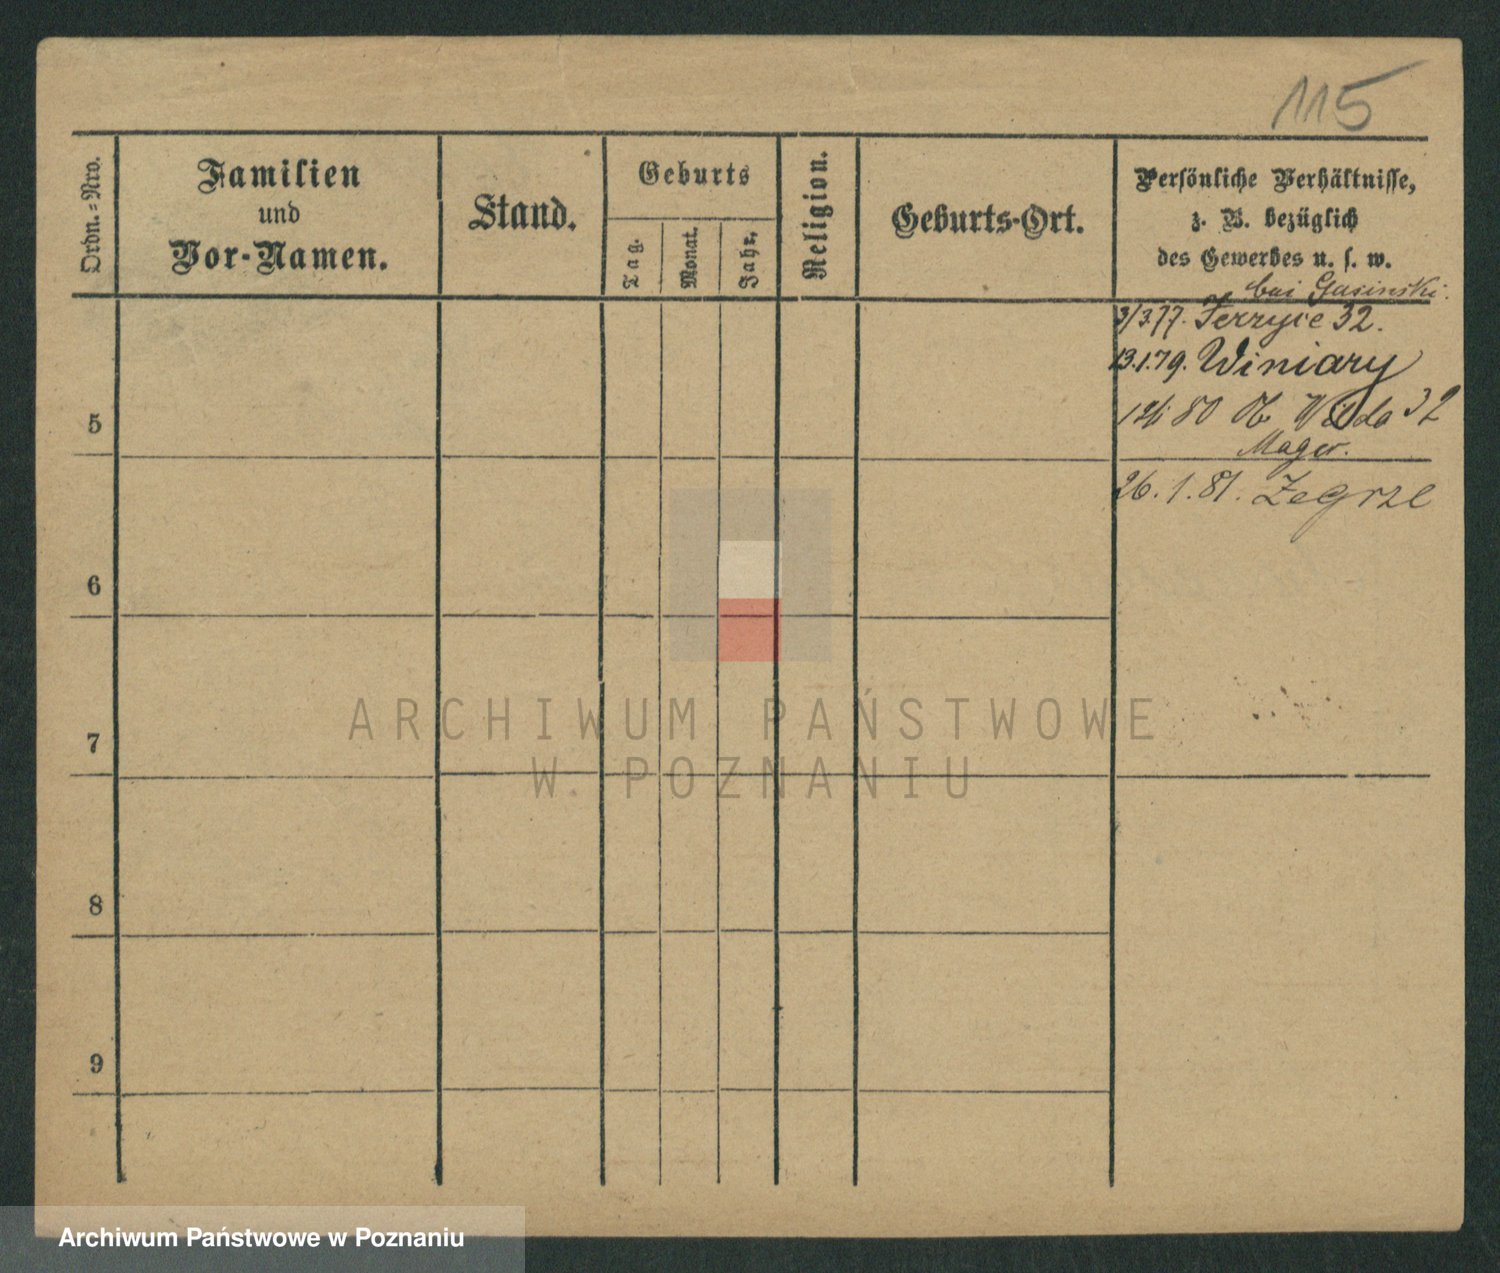 115
Ordn.-Nro.
Familien
und
Vor-Namen.
Stand.
Geburts
Tag.
Monat.
Jahr.
Religion.
Geburts-Ort.
Persönliche Verhältnisse,
z. B. bezüglich
des Gewerbes u. s. w.
bei Gasinski.
3/3.77. Jerzyce 32.
13.1.79. Winiary
80 Ob Wilda 32
Mager.
26.1.81. Zegrze
5
6
7
8
9
ARCHIWUM PAŃSTWOWE
W POZNANIU
Archiwum Państwowe w Poznaniu